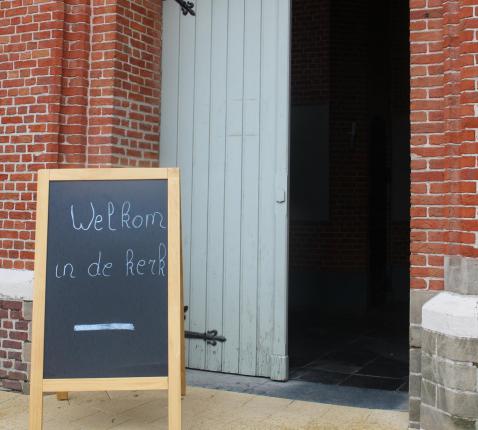 Welkom
in de kerk